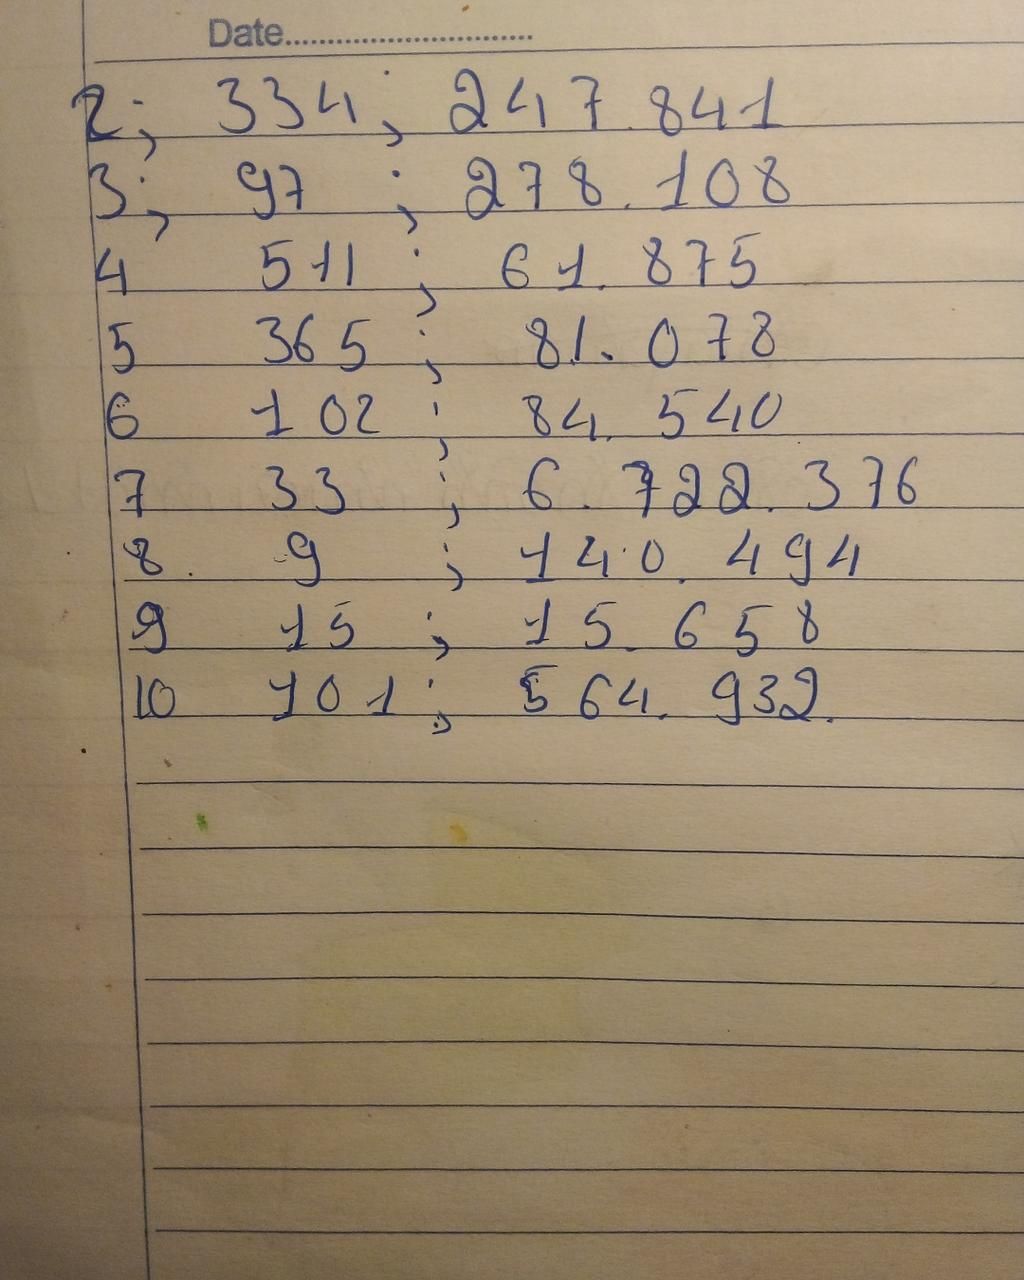 Date..............................
2; 334; 247.841
3; 97; 278.108
4 511; 61.875
5 365; 81.078
6 102; 84.540
7 33; 6.722.376
8. 9; 140.494
9 15; 15.658
10 101; 564.932.